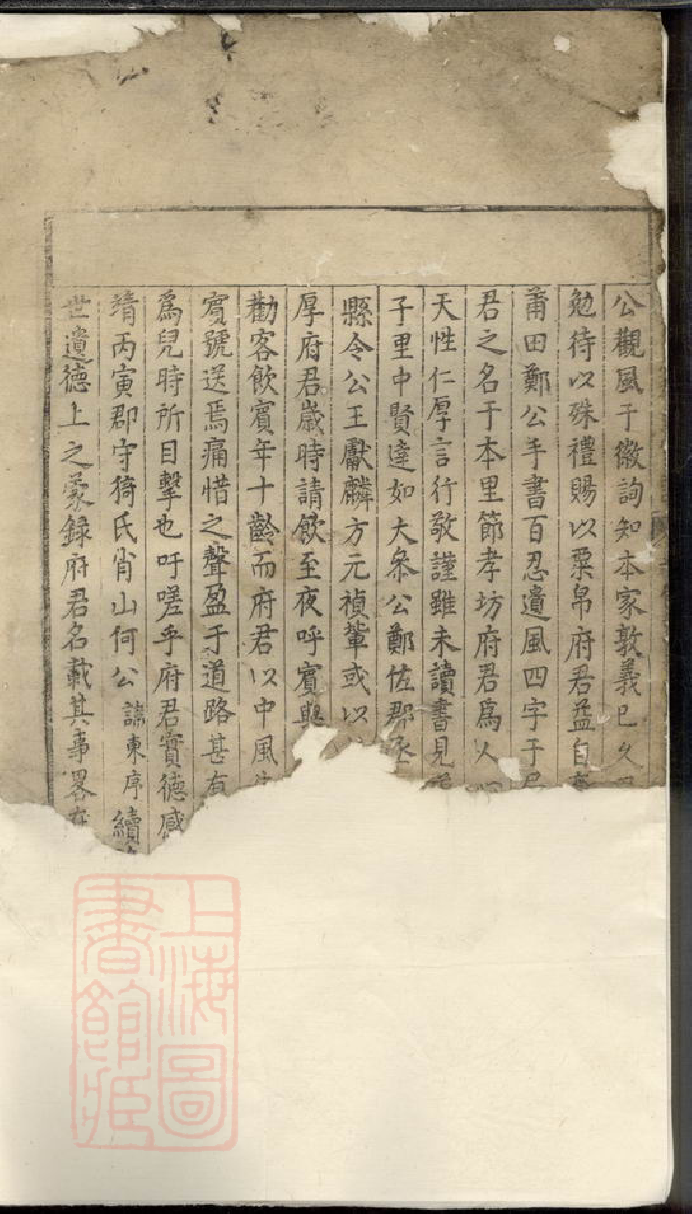 公觀風于徽詢知本家敦義已久
勉待以殊禮賜以粟帛府君益自
莆田鄭公手書百忍遺風四字于
君之名于本里節孝坊府君爲人
天性仁厚言行敬謹雖未讀書見
子里中賢達如大叅公鄭佐郡丞
縣令公王獻麟方元禎輩或以
厚府君歲時請飲至夜呼賓與
勸客飲賓年十齡而府君以中風
賓號送焉痛惜之聲盈于道路甚有
爲兒時所目擊也吁嗟乎府君實德感
靖丙寅郡守猗氏肖山何公諱東序續
世遺德上之彔錄府君名載其事畧在
上海圖
書館藏